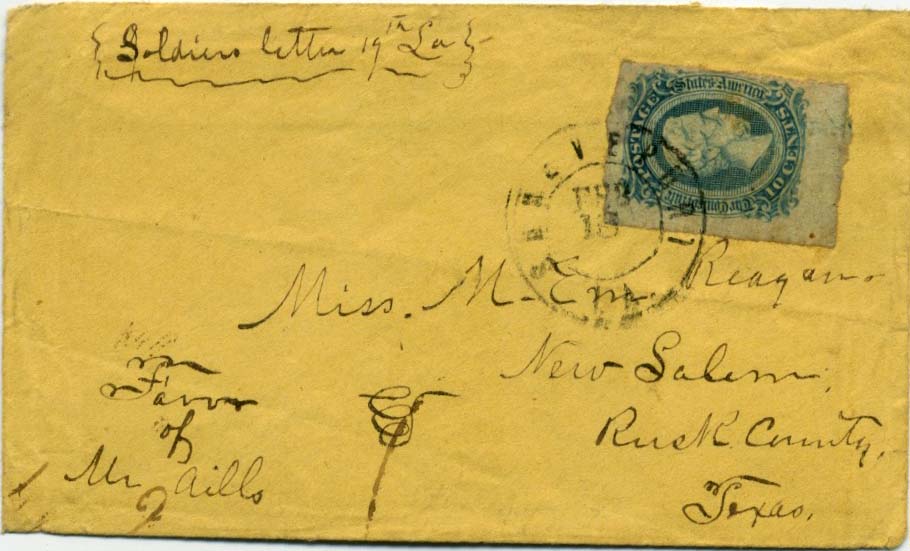 Soldiers letter 19th La
POSTAGE
The Confederate States America
TEN CENTS
SHREVEPORT
FEB
15
LA
Miss. M. Em. Reagan.
New Salem,
Rusk County,
Texas.
Favor
of
Mr